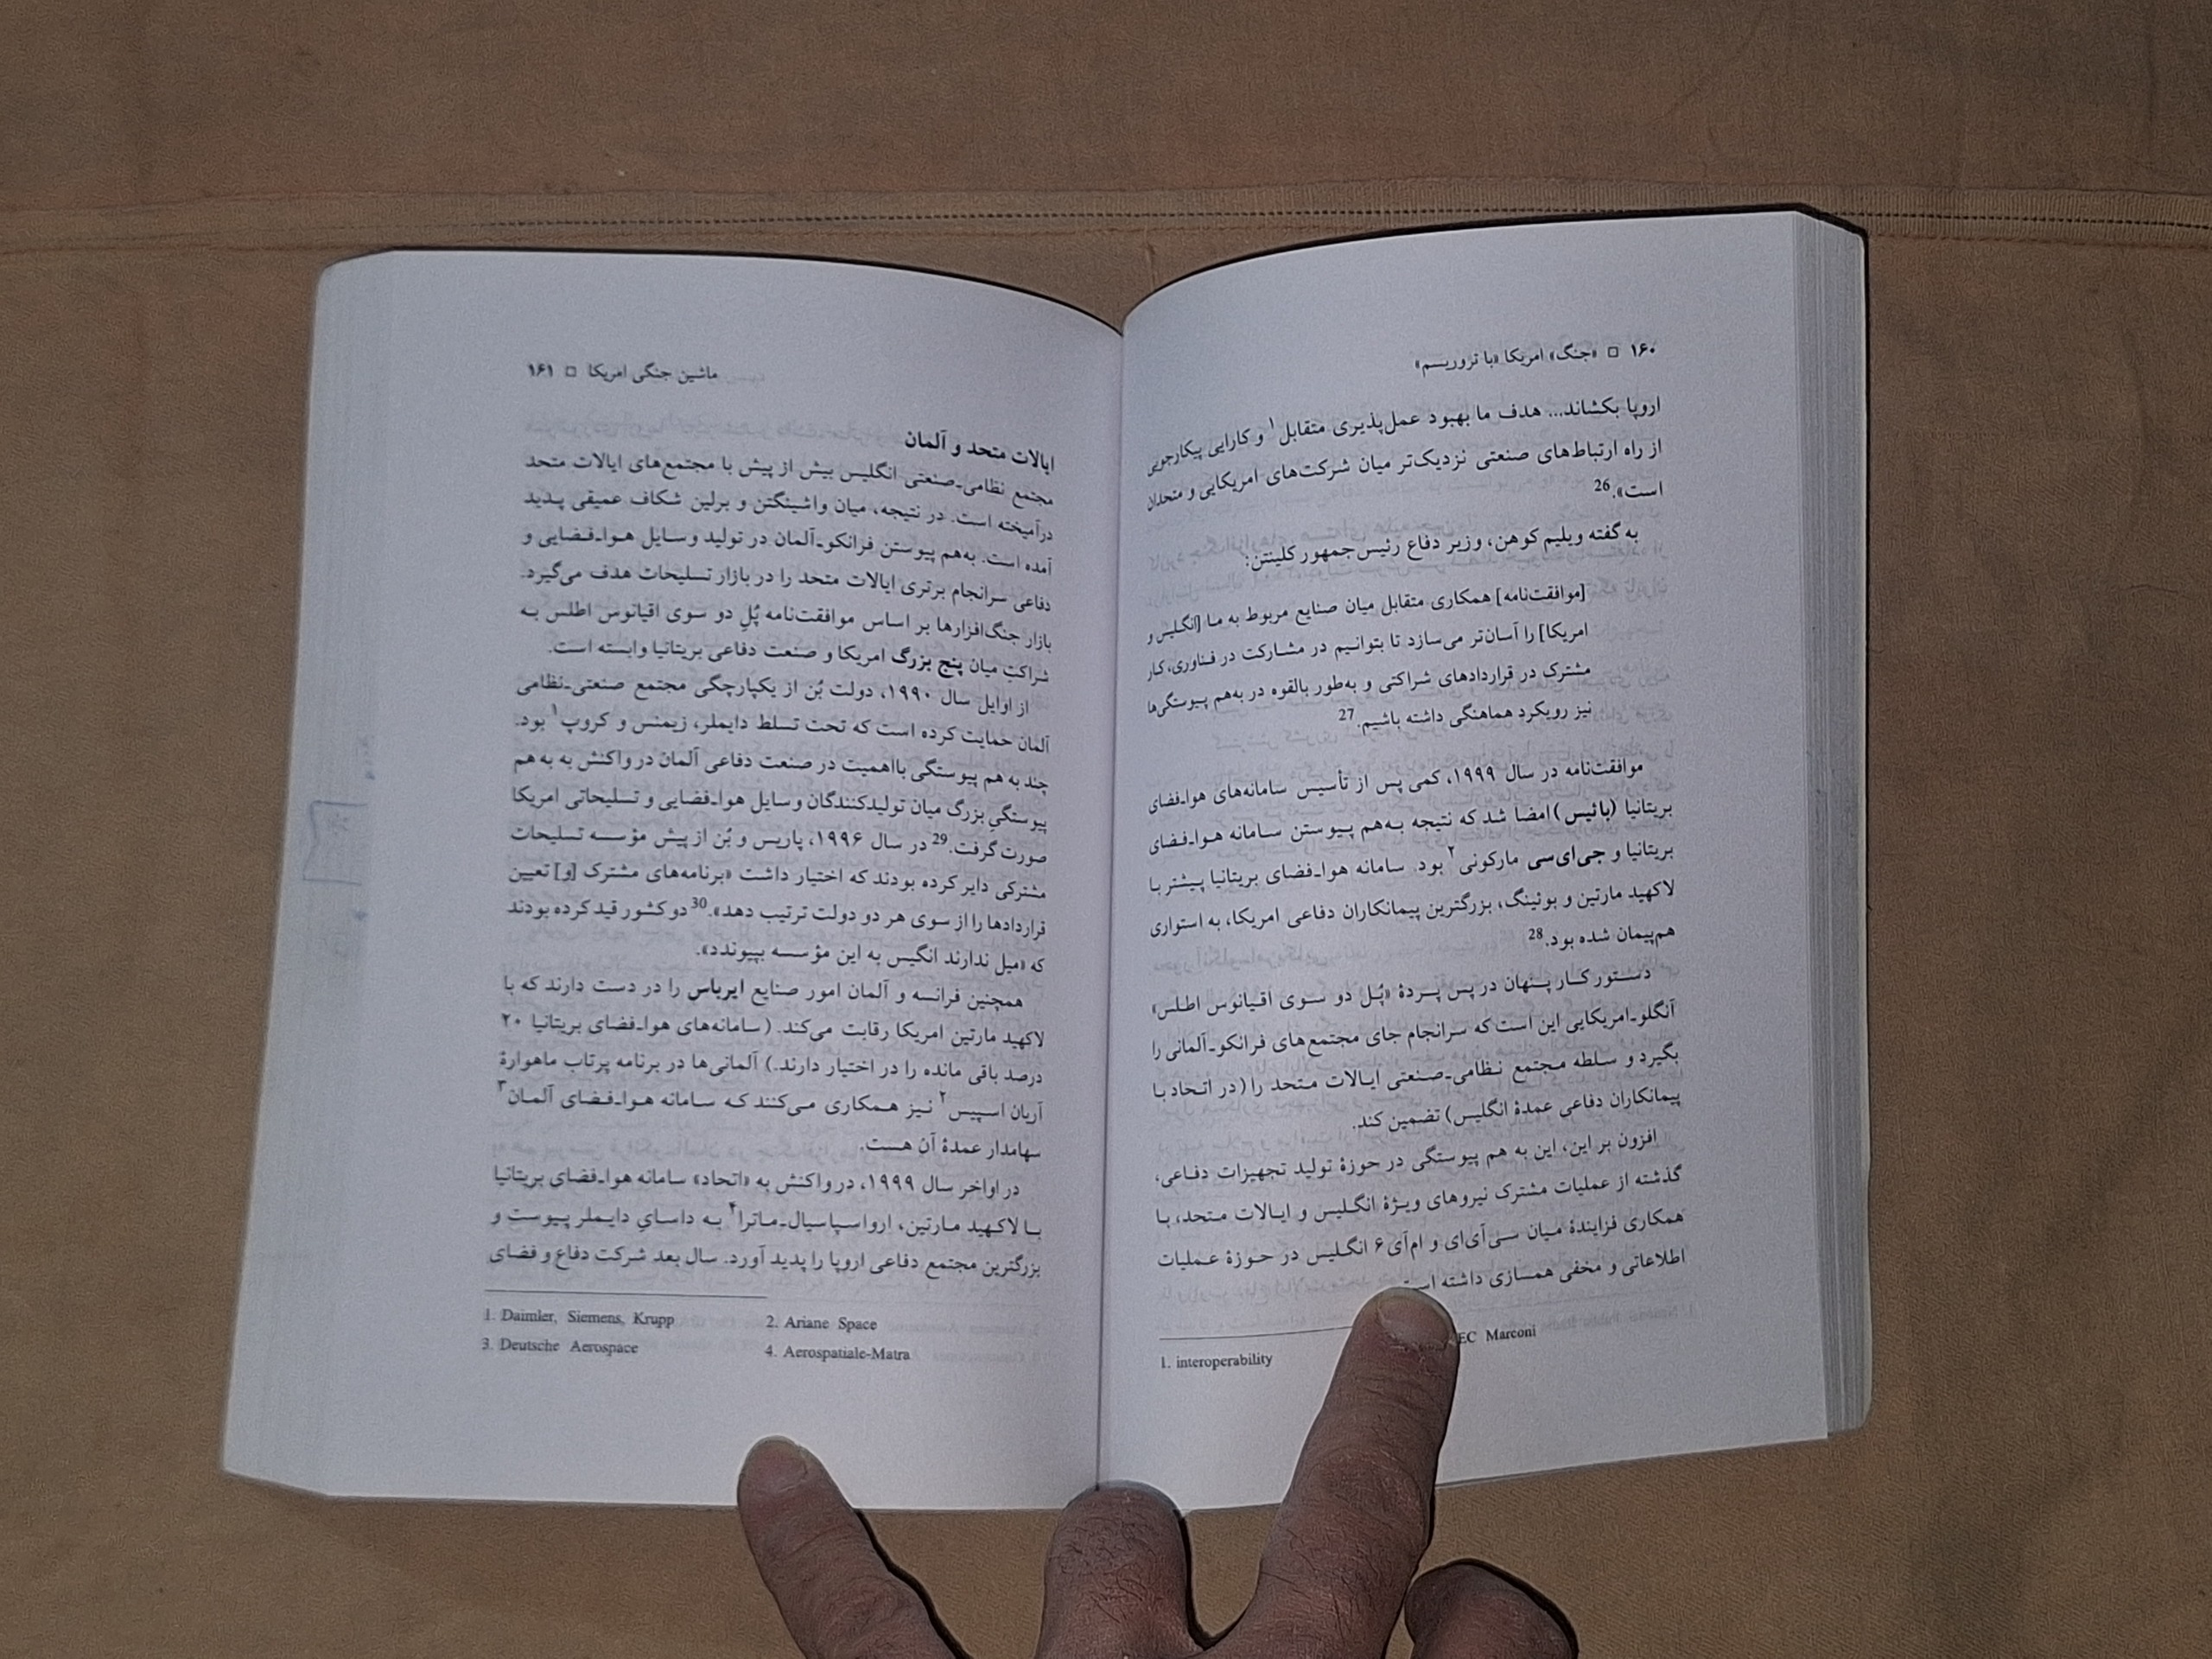 ۱۶۰ □ «جنگ» امریکا «با تروریسم»
اروپا بکشاند... هدف ما بهبود عمل‌پذیری متقابل۱ و کارایی پیکارجویی
از راه ارتباط‌های صنعتی نزدیک‌تر میان شرکت‌های امریکایی و متحدان
است».26
به گفته ویلیم کوهن، وزیر دفاع رئیس‌جمهور کلینتن:
[موافقت‌نامه] همکاری متقابل میان صنایع مربوط به ما [انگلیس و
امریکا] را آسان‌تر می‌سازد تا بتوانیم در مشارکت در فناوری، کار
مشترک در قراردادهای شراکتی و به‌طور بالقوه در به‌هم پیوستگی‌ها
نیز رویکرد هماهنگی داشته باشیم.27
موافقت‌نامه در سال ۱۹۹۹، کمی پس از تأسیس سامانه‌های هوا-فضای
بریتانیا (بائیس) امضا شد که نتیجه به‌هم پیوستن سامانه هوا-فضای
بریتانیا و جی‌ای‌سی مارکونی۲ بود. سامانه هوا-فضای بریتانیا پیشتر با
لاکهید مارتین و بوئینگ، بزرگترین پیمانکاران دفاعی امریکا، به استواری
هم‌پیمان شده بود.28
دستور کار پنهان در پس پردهٔ «پُل دو سوی اقیانوس اطلس»
آنگلو-امریکایی این است که سرانجام جای مجتمع‌های فرانکو-آلمانی را
بگیرد و سلطه مجتمع نظامی-صنعتی ایالات متحد را (در اتحاد با
پیمانکاران دفاعی عمدهٔ انگلیس) تضمین کند.
افزون بر این، این به هم پیوستگی در حوزهٔ تولید تجهیزات دفاعی،
گذشته از عملیات مشترک نیروهای ویژهٔ انگلیس و ایالات متحد، با
همکاری فزایندهٔ میان سی‌آی‌ای و ام‌آی۶ انگلیس در حوزهٔ عملیات
اطلاعاتی و مخفی همسازی داشته است
1. interoperability EC Marconi
ماشین جنگی امریکا □ ۱۶۱
ایالات متحد و آلمان
مجتمع نظامی-صنعتی انگلیس بیش از پیش با مجتمع‌های ایالات متحد
درآمیخته است. در نتیجه، میان واشینگتن و برلین شکاف عمیقی پدید
آمده است. به‌هم پیوستن فرانکو-آلمان در تولید وسایل هوا-فضایی و
دفاعی سرانجام برتری ایالات متحد را در بازار تسلیحات هدف می‌گیرد.
بازار جنگ‌افزارها بر اساس موافقت‌نامه پُلِ دو سوی اقیانوس اطلس به
شراکت میان پنج بزرگ امریکا و صنعت دفاعی بریتانیا وابسته است.
از اوایل سال ۱۹۹۰، دولت بُن از یکپارچگی مجتمع صنعتی-نظامی
آلمان حمایت کرده است که تحت تسلط دایملر، زیمنس و کروپ۱ بود.
چند به هم پیوستگی بااهمیت در صنعت دفاعی آلمان در واکنش به به هم
پیوستگیِ بزرگ میان تولیدکنندگان وسایل هوا-فضایی و تسلیحاتی امریکا
صورت گرفت.29 در سال ۱۹۹۶، پاریس و بُن از پیش مؤسسه تسلیحات
مشترکی دایر کرده بودند که اختیار داشت «برنامه‌های مشترک [و] تعیین
قراردادها را از سوی هر دو دولت ترتیب دهد».30 دو کشور قید کرده بودند
که «میل ندارند انگیس به این مؤسسه بپیوندد».
همچنین فرانسه و آلمان امور صنایع ایرباس را در دست دارند که با
لاکهید مارتین امریکا رقابت می‌کند. (سامانه‌های هوا-فضای بریتانیا ۲۰
درصد باقی مانده را در اختیار دارند.) آلمانی‌ها در برنامه پرتاب ماهوارهٔ
آریان اسپیس۲ نیز همکاری می‌کنند که سامانه هوا-فضای آلمان۳
سهامدار عمدهٔ آن هست.
در اواخر سال ۱۹۹۹، در واکنش به «اتحاد» سامانه هوا-فضای بریتانیا
با لاکهید مارتین، ارواسپاسیال-ماترا۴ به داسایِ دایملر پیوست و
بزرگترین مجتمع دفاعی اروپا را پدید آورد. سال بعد شرکت دفاع و فضای
1. Daimler, Siemens, Krupp 2. Ariane Space
3. Deutsche Aerospace 4. Aerospatiale-Matra